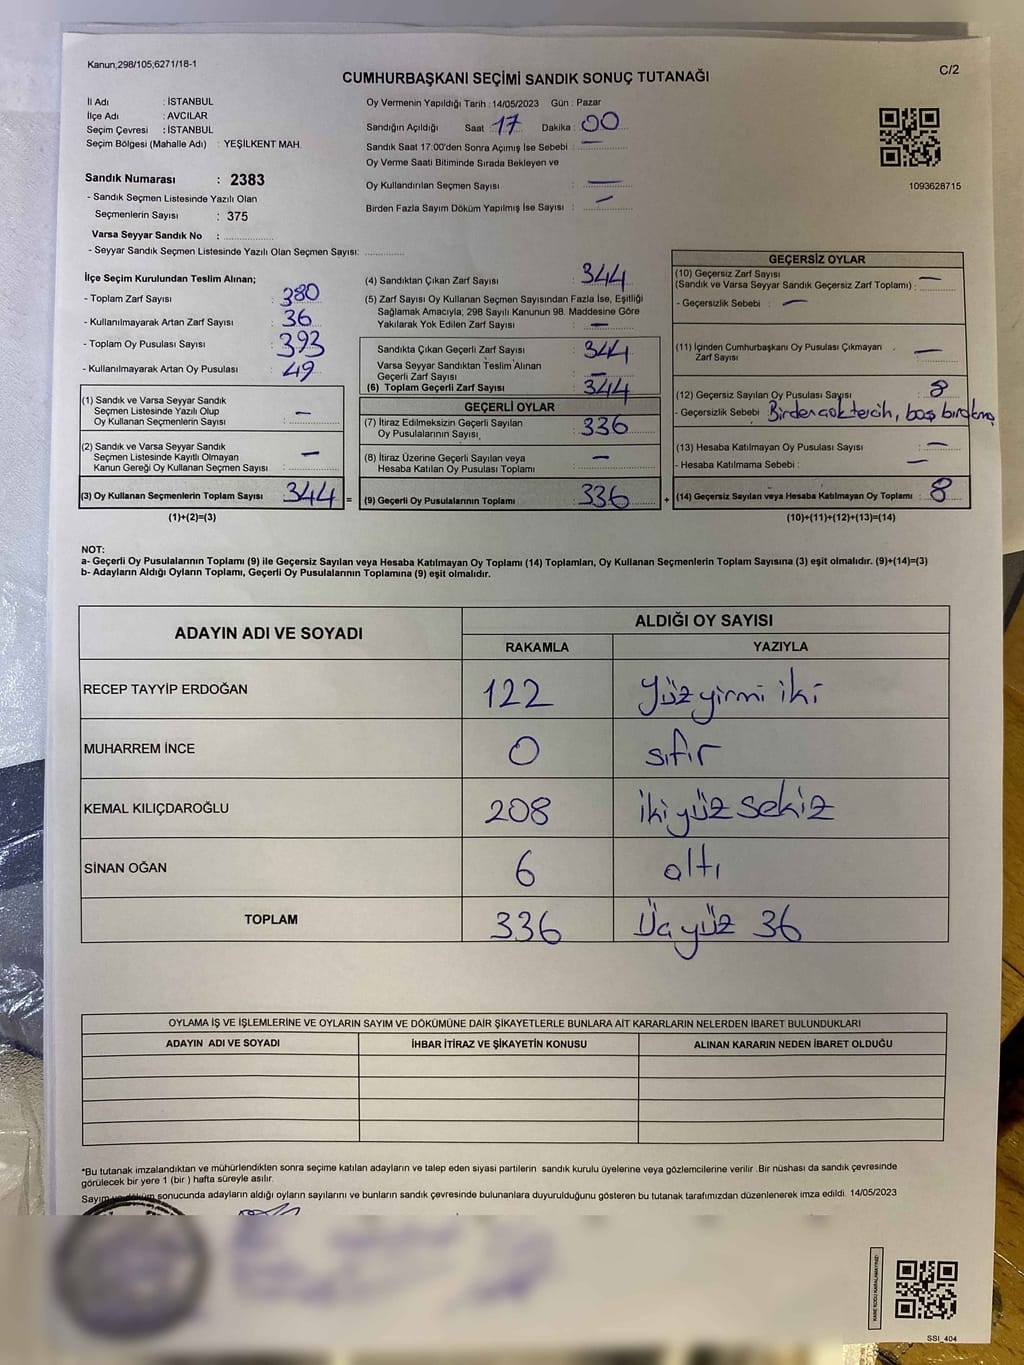 Kanun;298/105;6271/18-1
CUMHURBAŞKANI SEÇİMİ SANDIK SONUÇ TUTANAĞI
C/2
İl Adı : İSTANBUL
İlçe Adı : AVCILAR
Seçim Çevresi : İSTANBUL
Seçim Bölgesi (Mahalle Adı) : YEŞİLKENT MAH.
Sandık Numarası : 2383
- Sandık Seçmen Listesinde Yazılı Olan
Seçmenlerin Sayısı : 375
Varsa Seyyar Sandık No :
- Seyyar Sandık Seçmen Listesinde Yazılı Olan Seçmen Sayısı:
Oy Vermenin Yapıldığı Tarih : 14/05/2023 Gün : Pazar
Sandığın Açıldığı Saat : 17 Dakika : 00
Sandık Saat 17:00'den Sonra Açımış İse Sebebi : —
Oy Verme Saati Bitiminde Sırada Bekleyen ve
Oy Kullandırılan Seçmen Sayısı : —
Birden Fazla Sayım Döküm Yapılmış İse Sayısı : —
1093628715
İlçe Seçim Kurulundan Teslim Alınan;
- Toplam Zarf Sayısı : 380
- Kullanılmayarak Artan Zarf Sayısı : 36
- Toplam Oy Pusulası Sayısı : 393
- Kullanılmayarak Artan Oy Pusulası : 49
(1) Sandık ve Varsa Seyyar Sandık
Seçmen Listesinde Yazılı Olup
Oy Kullanan Seçmenlerin Sayısı : —
(2) Sandık ve Varsa Seyyar Sandık
Seçmen Listesinde Kayıtlı Olmayan
Kanun Gereği Oy Kullanan Seçmen Sayısı : —
(3) Oy Kullanan Seçmenlerin Toplam Sayısı : 344 =
(1)+(2)=(3)
(4) Sandıktan Çıkan Zarf Sayısı : 344
(5) Zarf Sayısı Oy Kullanan Seçmen Sayısından Fazla İse, Eşitliği
Sağlamak Amacıyla; 298 Sayılı Kanunun 98. Maddesine Göre
Yakılarak Yok Edilen Zarf Sayısı : —
Sandıkta Çıkan Geçerli Zarf Sayısı : 344
Varsa Seyyar Sandıktan Teslim Alınan
Geçerli Zarf Sayısı : —
(6) Toplam Geçerli Zarf Sayısı : 344
GEÇERLİ OYLAR
(7) İtiraz Edilmeksizin Geçerli Sayılan
Oy Pusulalarının Sayısı : 336
(8) İtiraz Üzerine Geçerli Sayılan veya
Hesaba Katılan Oy Pusulası Toplamı : —
(9) Geçerli Oy Pusulalarının Toplamı : 336 +
GEÇERSİZ OYLAR
(10) Geçersiz Zarf Sayısı
(Sandık ve Varsa Seyyar Sandık Geçersiz Zarf Toplamı) : —
- Geçersizlik Sebebi : —
(11) İçinden Cumhurbaşkanı Oy Pusulası Çıkmayan
Zarf Sayısı : —
(12) Geçersiz Sayılan Oy Pusulası Sayısı : 8
- Geçersizlik Sebebi : Birden çok tercih, boş bırakma
(13) Hesaba Katılmayan Oy Pusulası Sayısı : —
- Hesaba Katılmama Sebebi : —
(14) Geçersiz Sayılan veya Hesaba Katılmayan Oy Toplamı : 8
(10)+(11)+(12)+(13)=(14)
NOT:
a- Geçerli Oy Pusulalarının Toplamı (9) ile Geçersiz Sayılan veya Hesaba Katılmayan Oy Toplamı (14) Toplamları, Oy Kullanan Seçmenlerin Toplam Sayısına (3) eşit olmalıdır. (9)+(14)=(3)
b- Adayların Aldığı Oyların Toplamı, Geçerli Oy Pusulalarının Toplamına (9) eşit olmalıdır.
ADAYIN ADI VE SOYADI
ALDIĞI OY SAYISI
RAKAMLA YAZIYLA
RECEP TAYYİP ERDOĞAN 122 Yüz yirmi iki
MUHARREM İNCE 0 sıfır
KEMAL KILIÇDAROĞLU 208 iki yüz sekiz
SİNAN OĞAN 6 altı
TOPLAM 336 Üç yüz 36
OYLAMA İŞ VE İŞLEMLERİNE VE OYLARIN SAYIM VE DÖKÜMÜNE DAİR ŞİKAYETLERLE BUNLARA AİT KARARLARIN NELERDEN İBARET BULUNDUKLARI
ADAYIN ADI VE SOYADI İHBAR İTİRAZ VE ŞİKAYETİN KONUSU ALINAN KARARIN NEDEN İBARET OLDUĞU
*Bu tutanak imzalandıktan ve mühürlendikten sonra seçime katılan adayların ve talep eden siyasi partilerin sandık kurulu üyelerine veya gözlemcilerine verilir .Bir nüshası da sandık çevresinde
görülecek bir yere 1 (bir ) hafta süreyle asılır.
Sayım ve döküm sonucunda adayların aldığı oyların sayılarını ve bunların sandık çevresinde bulunanlara duyurulduğunu gösteren bu tutanak tarafımızdan düzenlenerek imza edildi. 14/05/2023
KARE KODU KARALAMAYINIZ!
SSI_404